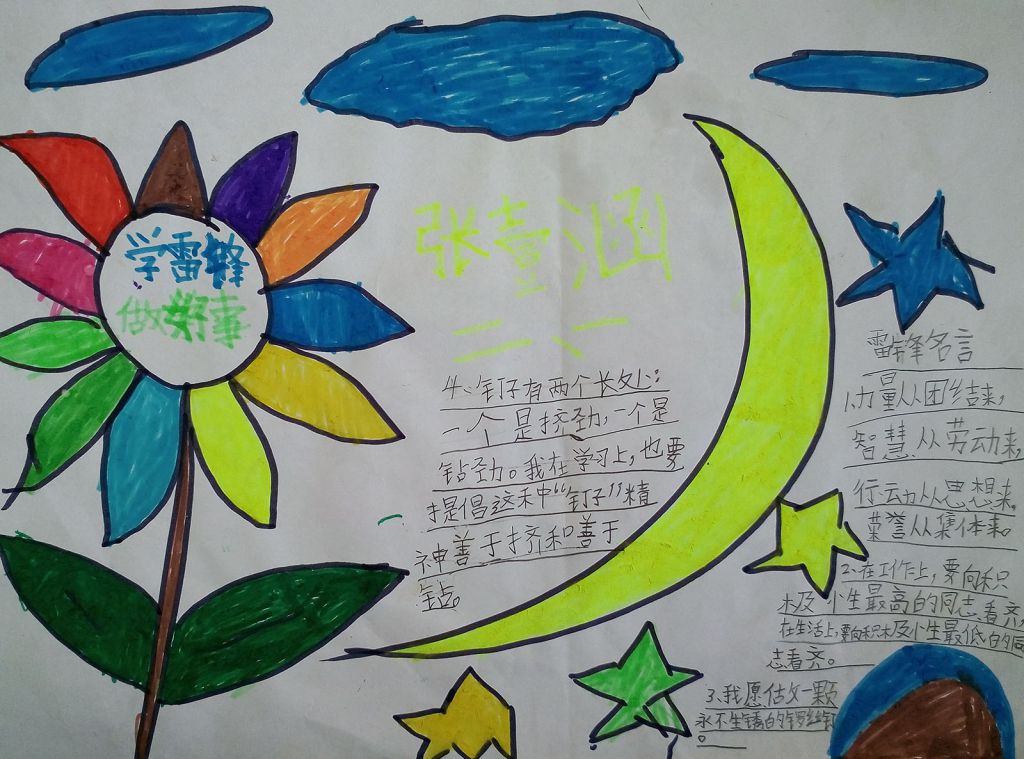 学雷锋
做好事
张壹涵
二、
4、钉子有两个长处：
一个是挤劲，一个是
钻劲。我在学习上，也要
提倡这种“钉子”精
神善于挤和善于
钻。
雷锋名言
1、力量从团结来，
智慧从劳动来，
行动从思想来。
荣誉从集体来。
2、在工作上，要向积
极小生最高的同志看齐，
在生活上，要向积极小生最低的同
志看齐。
3、我愿做一颗
永不生锈的螺丝钉
。